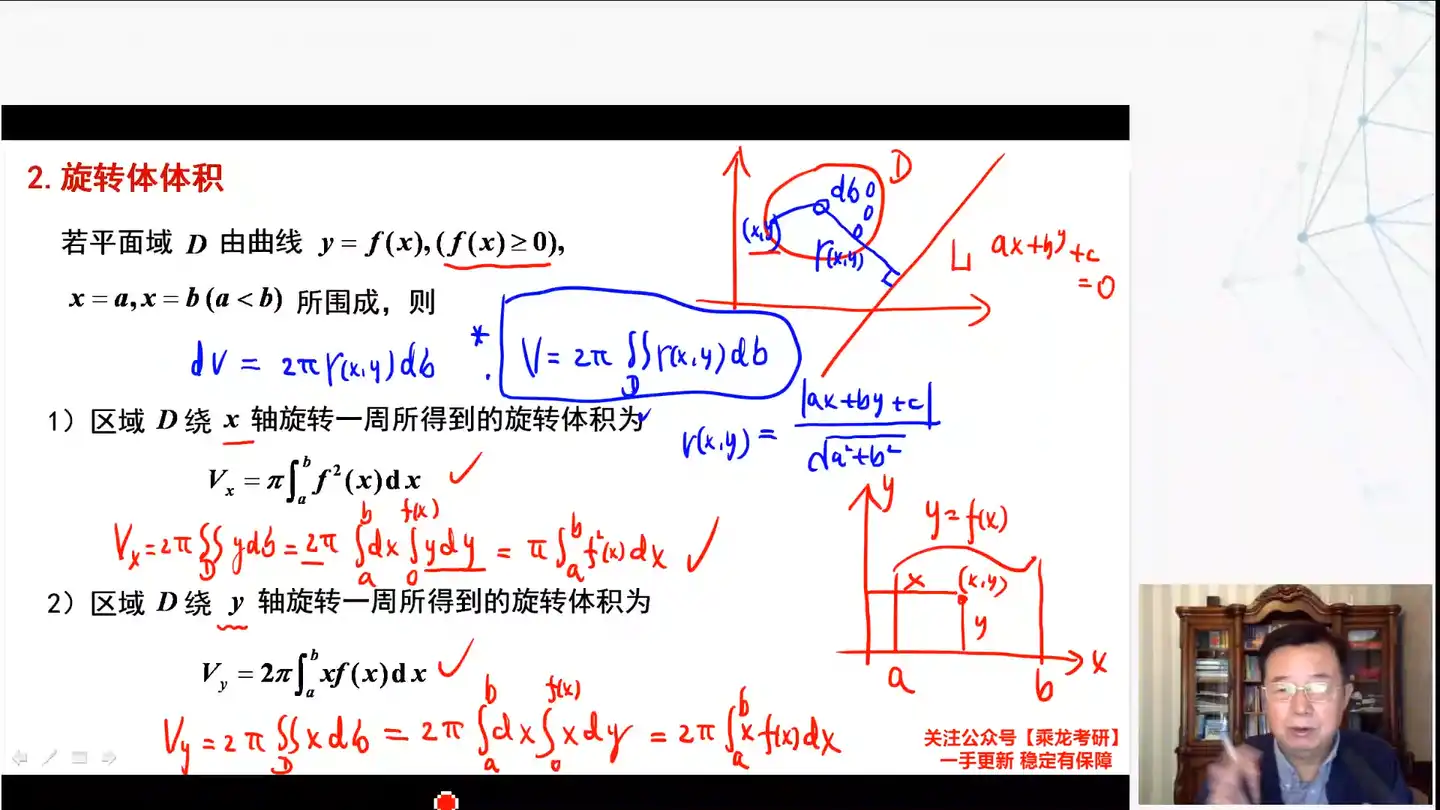 2. 旋转体体积
若平面域 D 由曲线 y = f(x), (f(x) ≥ 0),
x = a, x = b (a < b) 所围成，则
dV = 2π r(x,y) dσ
* V = 2π ∬_D r(x,y) dσ
D
dσ
(x,y)
r(x,y)
L
ax+by+c
=0
r(x,y) = |ax+by+c| / √(a²+b²)
1）区域 D 绕 x 轴旋转一周所得到的旋转体积为
V_x = π∫_a^b f²(x)dx
V_x = 2π ∬_D y dσ = 2π ∫_a^b dx ∫_0^{f(x)} y dy = π ∫_a^b f²(x) dx
2）区域 D 绕 y 轴旋转一周所得到的旋转体积为
V_y = 2π∫_a^b xf(x)dx
V_y = 2π ∬_D x dσ = 2π ∫_a^b dx ∫_0^{f(x)} x dy = 2π ∫_a^b x f(x) dx
y
y=f(x)
x
(x,y)
y
a
b
x
关注公众号【乘龙考研】
一手更新 稳定有保障